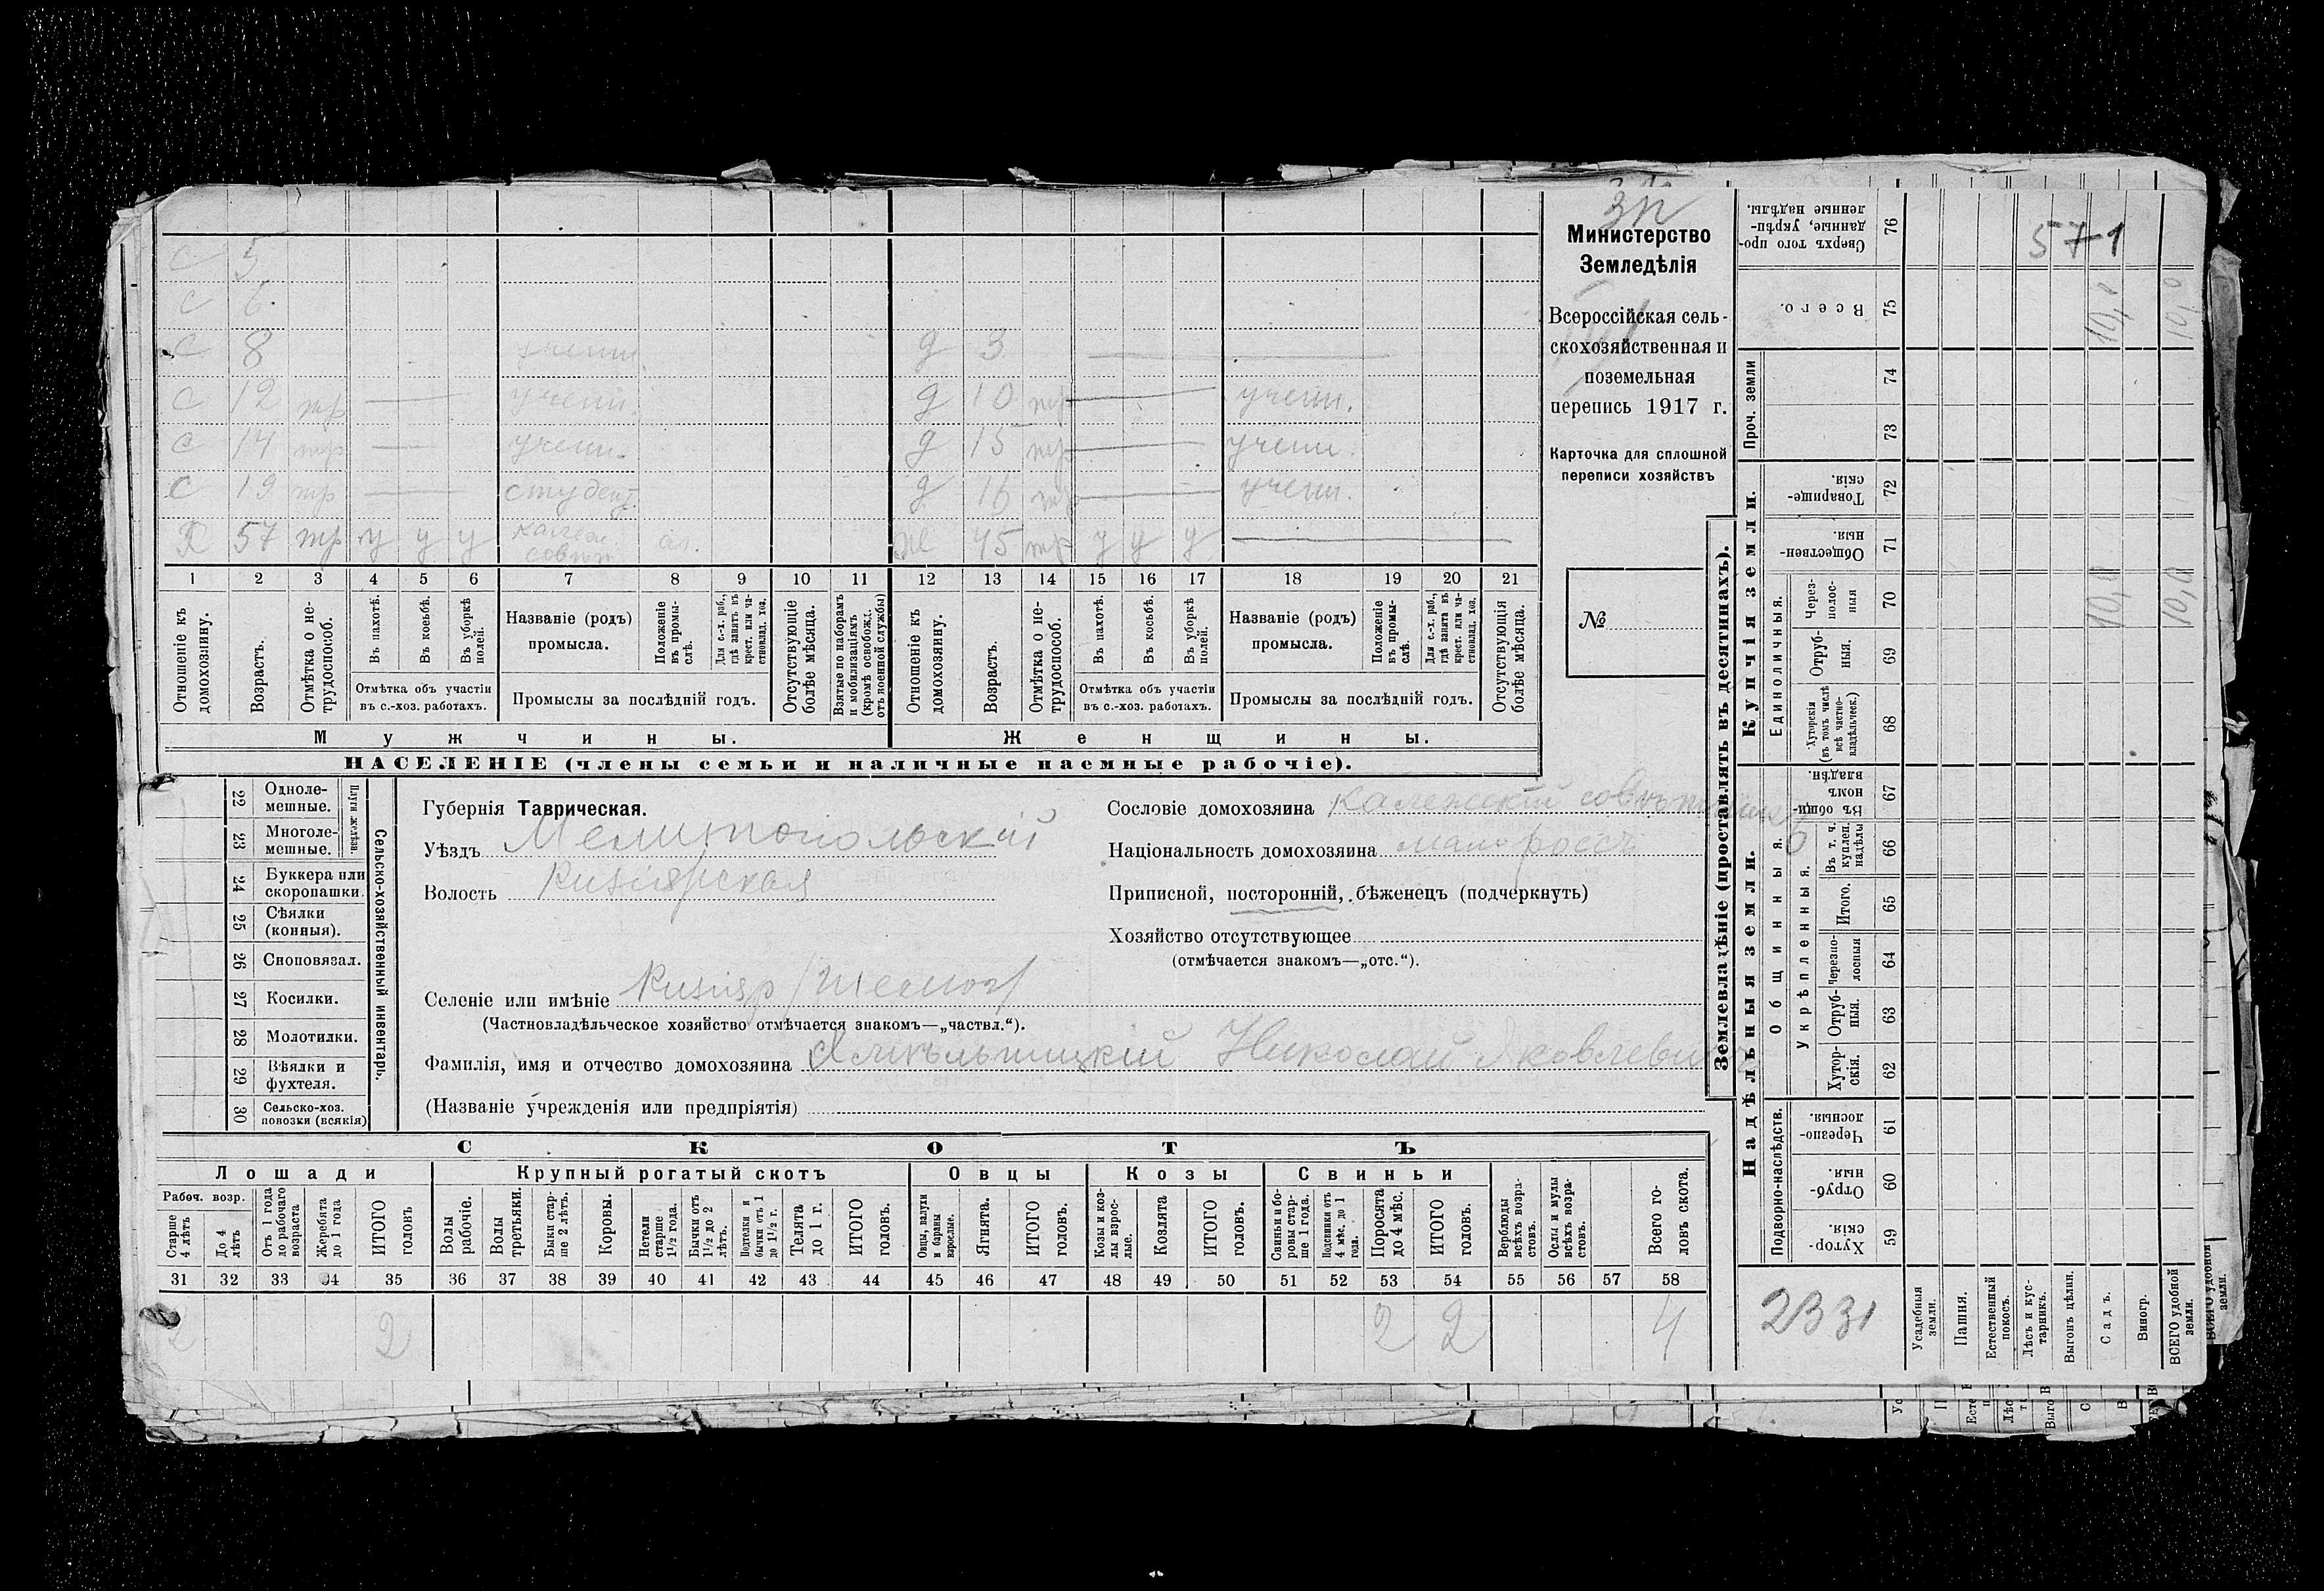 Зп
Министерство
Земледѣлія
Всероссійская сель-
скохозяйственная и
поземельная
перепись 1917 г.
Карточка для сплошной
переписи хозяйствъ
№
с 5
с 6
с 8 учени д 3
с 12 тр — учени. д 10 тр — учени.
с 14 тр — учени. д 15 тр — учени.
с 19 тр — студент. д 16 тр — учени.
57 тр у у у 45 тр у у у
1 2 3 4 5 6 7 8 9 10 11 12 13 14 15 16 17 18 19 20 21
Отношеніе къ домохозяину.
Возрастъ.
Отмѣтка о не-трудоспособ.
Въ пахотѣ.
Въ косьбѣ.
Въ уборкѣ полей.
Отмѣтка объ участіи
въ с.-хоз. работахъ.
Названіе (родъ)
промысла.
Положеніе въ промы-слѣ.
Для с.-х. раб., гдѣ занятъ въ крест. или ча-стновлад. хоз.
Промыслы за послѣдній годъ.
Отсутствующіе болѣе мѣсяца.
Взятые по наборамъ и мобилизаціямъ (кромѣ освобожд. отъ военной службы)
Отношеніе къ домохозяину.
Возрастъ.
Отмѣтка о не-трудоспособ.
Въ пахотѣ.
Въ косьбѣ.
Въ уборкѣ полей.
Отмѣтка объ участіи
въ с.-хоз. работахъ.
Названіе (родъ)
промысла.
Положеніе въ промы-слѣ.
Для с.-х. раб., гдѣ занята въ крест. или ча-стновлад. хоз.
Промыслы за послѣдній годъ.
Отсутствующія болѣе мѣсяца.
Мужчины. Женщины.
НАСЕЛЕНІЕ (члены семьи и наличные наемные рабочіе).
Сельско-хозяйственный инвентарь.
Плуги желѣзн.
22 Одноле-мешные.
23 Многоле-мешные.
24 Буккера или скоропашки.
25 Сѣялки (конныя).
26 Сноповязал.
27 Косилки.
28 Молотилки.
29 Вѣялки и фухтеля.
30 Сельско-хоз. повозки (всякія)
Губернія Таврическая.
Уѣздъ Мелитопольскій
Волость
Селеніе или имѣніе
(Частновладѣльческое хозяйство отмѣчается знакомъ—„частвл.“).
Фамилія, имя и отчество домохозяина Николай Яковлеви
(Названіе учрежденія или предпріятія)
Сословіе домохозяина
Національность домохозяина малороссъ
Приписной, посторонній, бѣженецъ (подчеркнуть)
Хозяйство отсутствующее
(отмѣчается знакомъ—„отс.“).
СКОТЪ
Лошади Крупный рогатый скотъ Овцы Козы Свиньи
Рабоч. возр.
Старше 4 лѣтъ
До 4 лѣтъ
Отъ 1 года до рабочаго возраста
Жеребята до 1 года
ИТОГО головъ
Волы рабочіе.
Волы третьяки.
Быки стар-ше 2 лѣтъ.
Коровы.
Нетели старше 1½ года.
Бычки отъ 1½ до 2 лѣтъ.
Подтелки и бычки отъ 1 до 1½ г.
Телята до 1 г.
ИТОГО головъ.
Овцы, валухи и бараны взрослые.
Ягнята.
ИТОГО головъ.
Козы и коз-лы взрос-лые.
Козлята
ИТОГО головъ.
Свиньи и бо-ровы стар-ше 1 года.
Подсвинки отъ 4 мѣс. до 1 года.
Поросята до 4 мѣс.
ИТОГО головъ.
Верблюды всѣхъ возра-стовъ.
Ослы и мулы всѣхъ возра-стовъ.
Всего го-ловъ скота.
31 32 33 34 35 36 37 38 39 40 41 42 43 44 45 46 47 48 49 50 51 52 53 54 55 56 57 58
2 2 2 2 4
Землевладѣніе (проставлять въ десятинахъ).
Надѣльныя земли. Купчія земли. Проч. земли
Подворно-наслѣдств.
Общинныя.
Укрѣпленныя.
Единоличныя.
59 Хутор-скія.
60 Отруб-ныя.
61 Черезпо-лосныя
62 Хутор-скія.
63 Отруб-ныя.
64 Черезпо-лосныя
65 Итого.
66 Въ т. ч. куплен. надѣлы
67 Въ общи-номъ владѣн.
68 Хуторскія (въ томъ числѣ всѣ частно-владѣльческ.)
69 Отруб-ныя.
70 Через-полос-ныя
71 Обществен-ныя
72 Товарище-скія.
73
74
75 Всего.
76 Сверхъ того про-данные, укрѣп-ленные надѣлы.
571
10,0 10,0
10,0 10,0
2331
Усадебныя земли.
Пашня.
Естественный покосъ.
Лѣсъ и кус-тарникъ.
Выгонъ цѣлин.
Садъ.
Виногр.
ВСЕГО удобной земли.
ВСЕГО удобной земли.